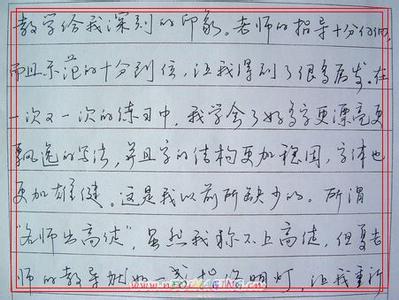 教学给我深刻的印象。老师的指导十分仔细,
而且示范的十分到位,让我得到了很多启发。在
一次又一次的练习中,我学会了好多字更漂亮更
飘逸的写法,并且字的结构更加稳固,字体也
更加雄健。这是我以前所缺少的。所谓
“名师出高徒”,虽然我称不上高徒,但夏老
师的教导就如一 明灯,让我重新